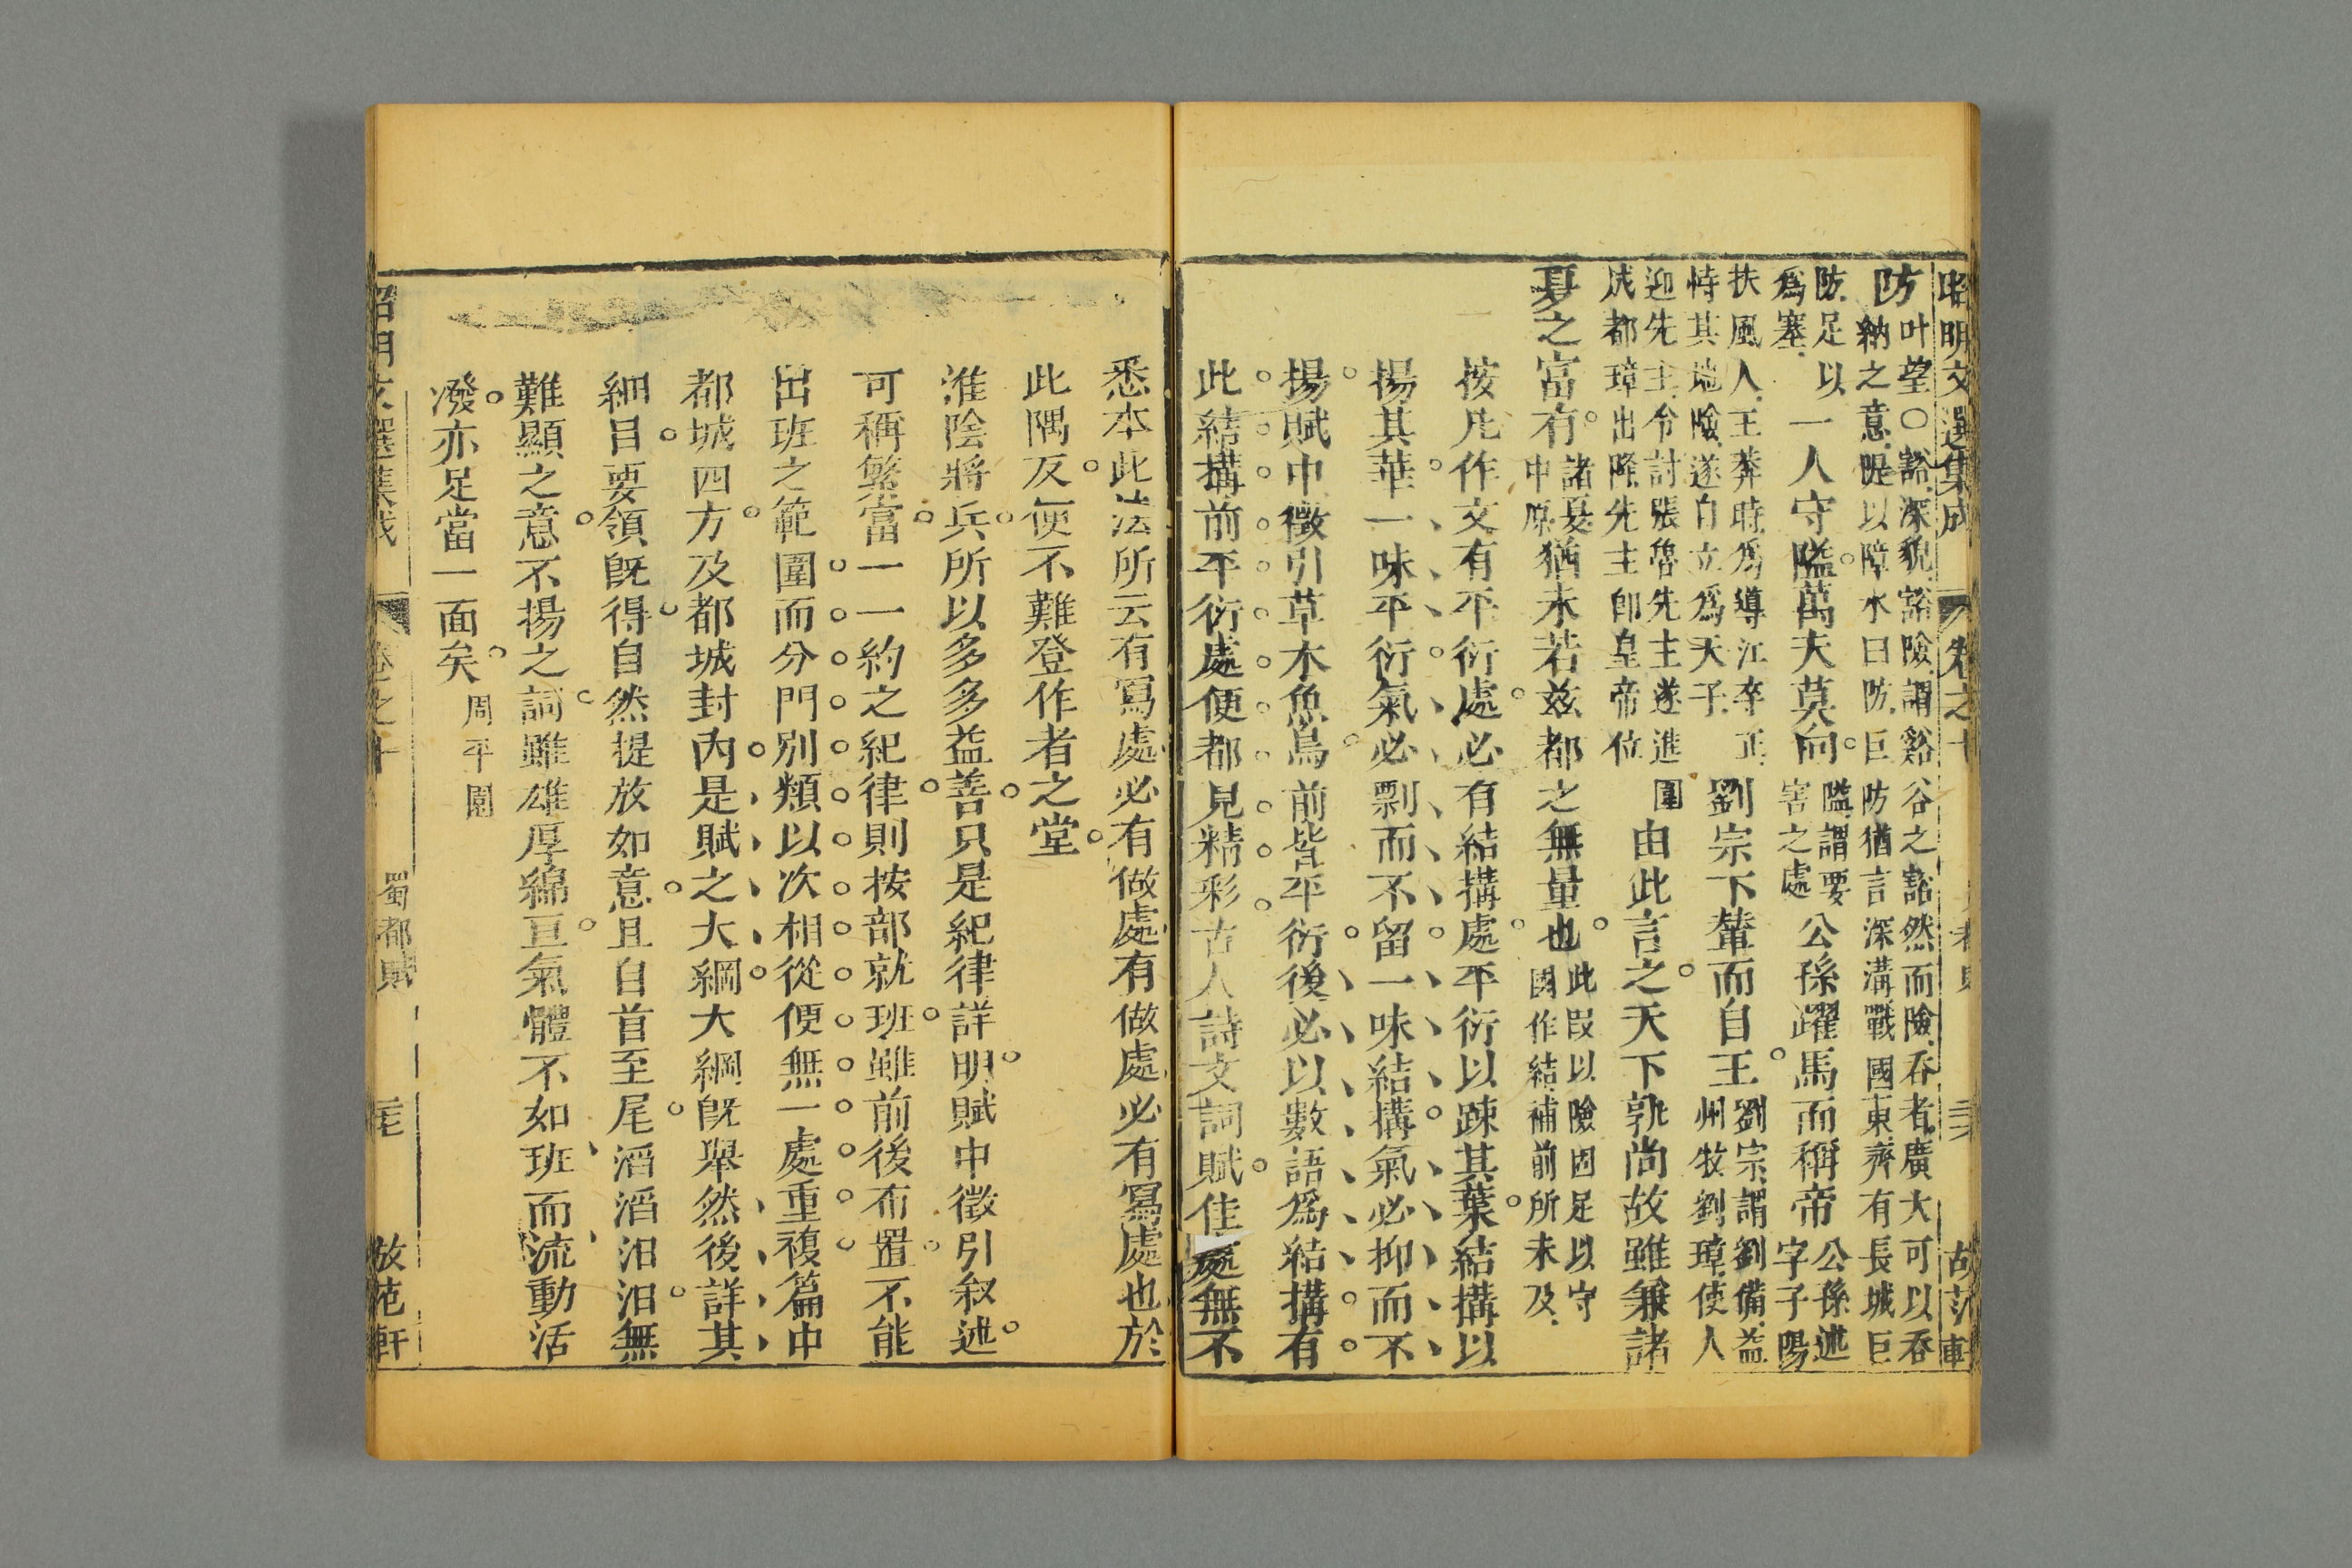 昭明文選集成 卷之十 古范軒
防叶望○豁深貌豁險謂谿谷之豁然而險吞者廣大可以吞
納之意隄以障水曰防巨防猶言深溝戰國東齊有長城巨
防足以
爲塞 以一人守隘萬夫莫向隘謂要害之處公孫躍馬而稱帝公孫述字子陽
扶風人王莽時爲導江卒正
恃其地險遂自立爲天子 劉宗下輦而自王劉宗謂劉備益州牧劉璋使人
迎先主令討張魯先主遂進圍
成都璋出降先主卽皇帝位 由此言之天下孰尚故雖兼諸
夏之富有諸夏中原猶未若兹都之無量也此段以險固足以守國作結補前所未及
按凡作文有平衍處必有結搆處平衍以疎其葉結搆以
揚其華一味平衍氣必剽而不留一味結搆氣必抑而不
揚賦中徵引草木魚鳥前皆平衍後必以數語爲結搆有
此結搆前平衍處便都見精彩古人詩文詞賦佳處無不
悉本此法所云有寫處必有做處有做處必有寫處也於
此隅反便不難登作者之堂
淮陰將兵所以多多益善只是紀律詳明賦中徵引叙述
可稱繁富一一約之紀律則按部就班雖前後布置不能
出班之範圍而分門別類以次相從便無一處重複篇中
都城四方及都城封內是賦之大綱大綱旣舉然後詳其
細目要領旣得自然提放如意且自首至尾滔滔汨汨無
難顯之意不揚之詞雖雄厚綿亘氣體不如班而流動活
潑亦足當一面矣周平園
昭明文選集成 卷之十 蜀都賦 放范軒